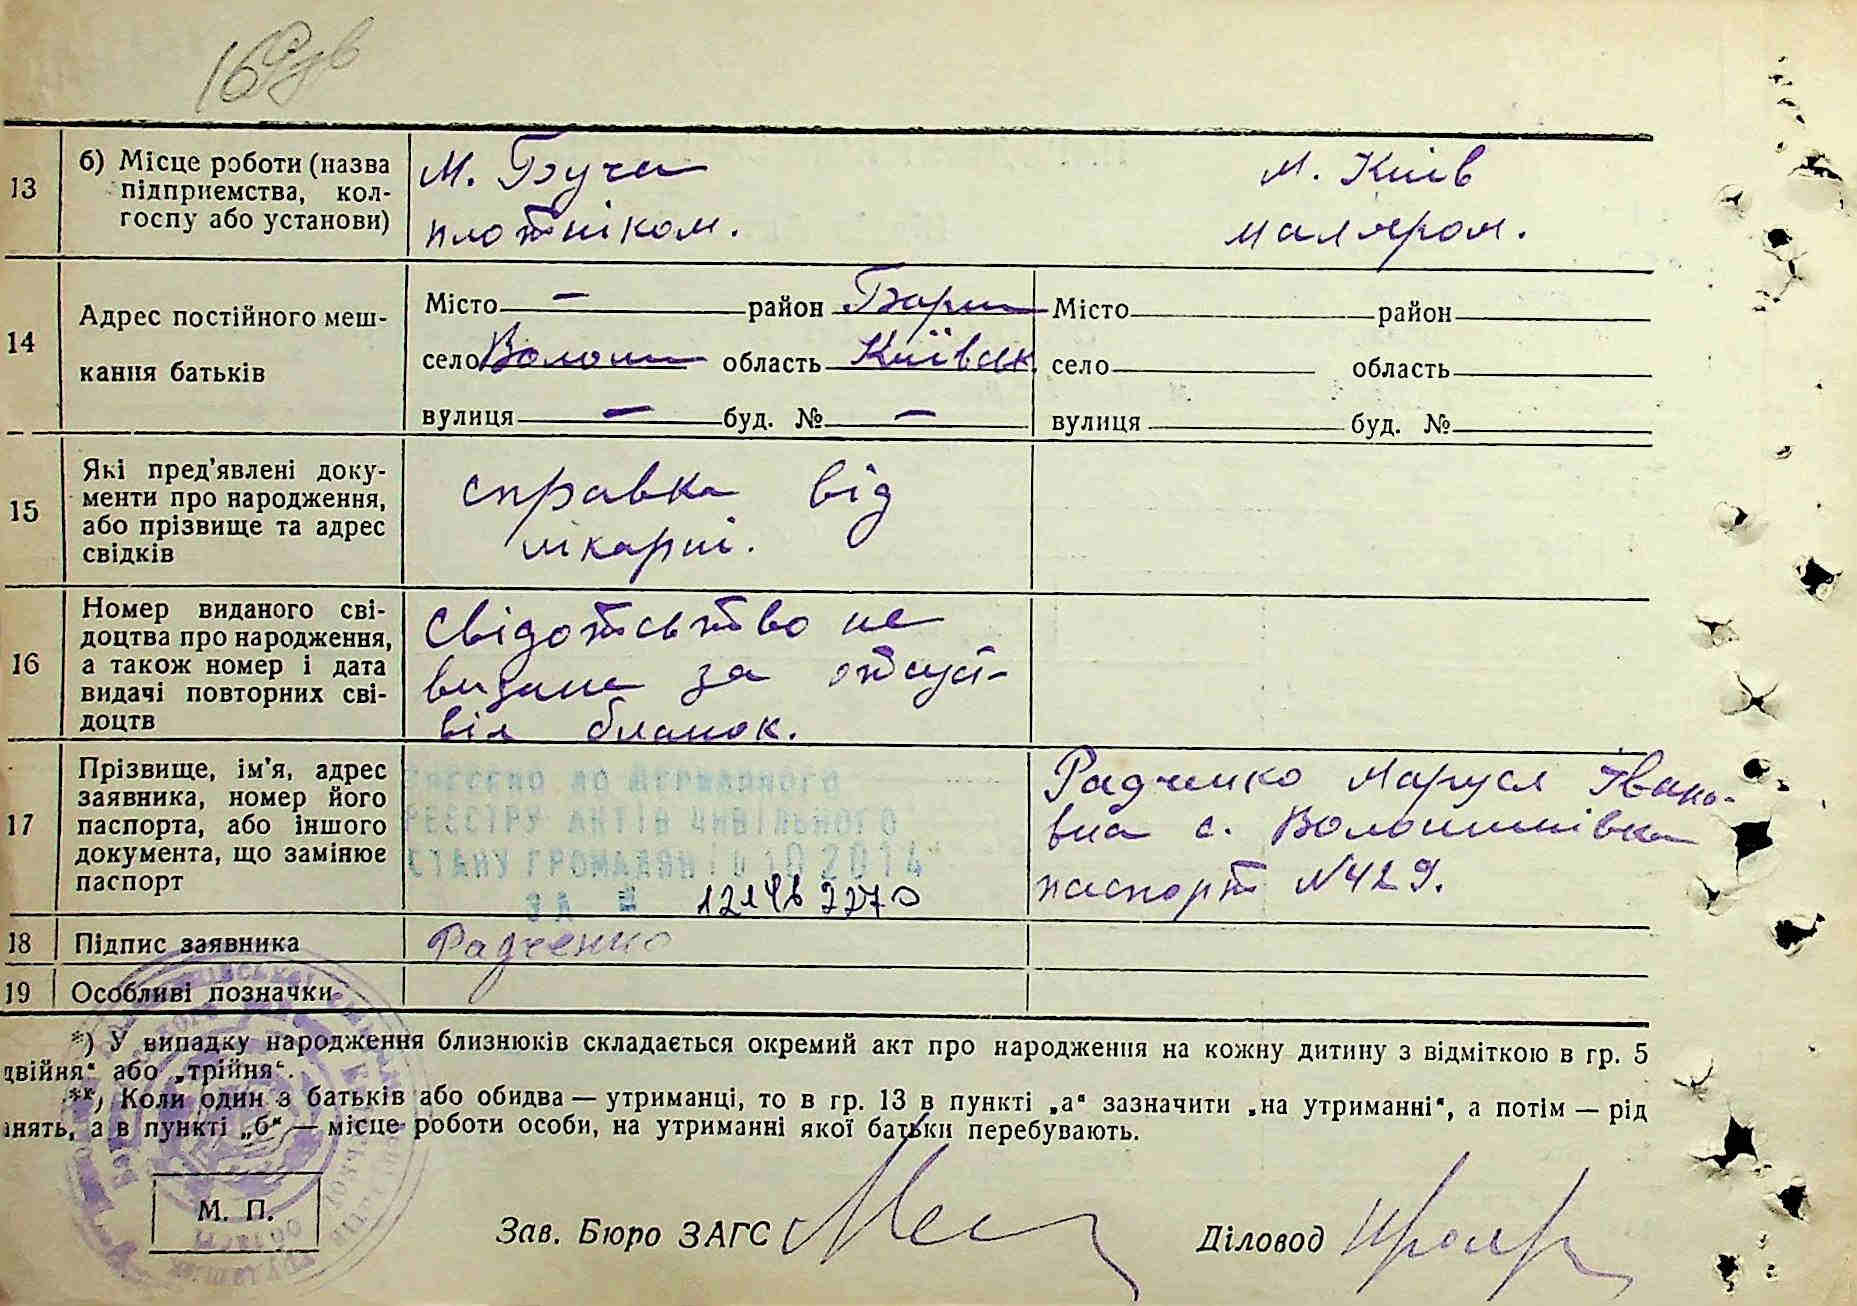 13
б) Місце роботи (назва
підприємства, кол-
госпу або установи)
м. Буча
плотніком.
м. Київ
маляром.
14
Адрес постійного меш-
кання батьків
Місто — район
село область Київськ
вулиця — буд. № —
Місто район
село область
вулиця буд. №
15
Які пред'явлені доку-
менти про народження,
або прізвище та адрес
свідків
справка від
лікарні.
16
Номер виданого сві-
доцтва про народження,
а також номер і дата
видачі повторних сві-
доцтв
Свідотством не
видане за отсуст-
вія бланок.
17
Прізвище, ім'я, адрес
заявника, номер його
паспорта, або іншого
документа, що замінює
паспорт
ВНЕСЕНО ДО ДЕРЖАВНОГО
РЕЄСТРУ АКТІВ ЦИВІЛЬНОГО
СТАНУ ГРОМАДЯН 2014
ЗА №
Радченко Маруся Івано-
вна с. Волошинівка
паспорт №429.
18
Підпис заявника
Радченко
19
Особливі позначки
*) У випадку народження близнюків складається окремий акт про народження на кожну дитину з відміткою в гр. 5
двійня" або „трійня".
**) Коли один з батьків або обидва — утриманці, то в гр. 13 в пункті „а" зазначити „на утриманні", а потім — рід
нять, а в пункті „б" — місце роботи особи, на утриманні якої батьки перебувають.
М. П.
Зав. Бюро ЗАГС
Діловод